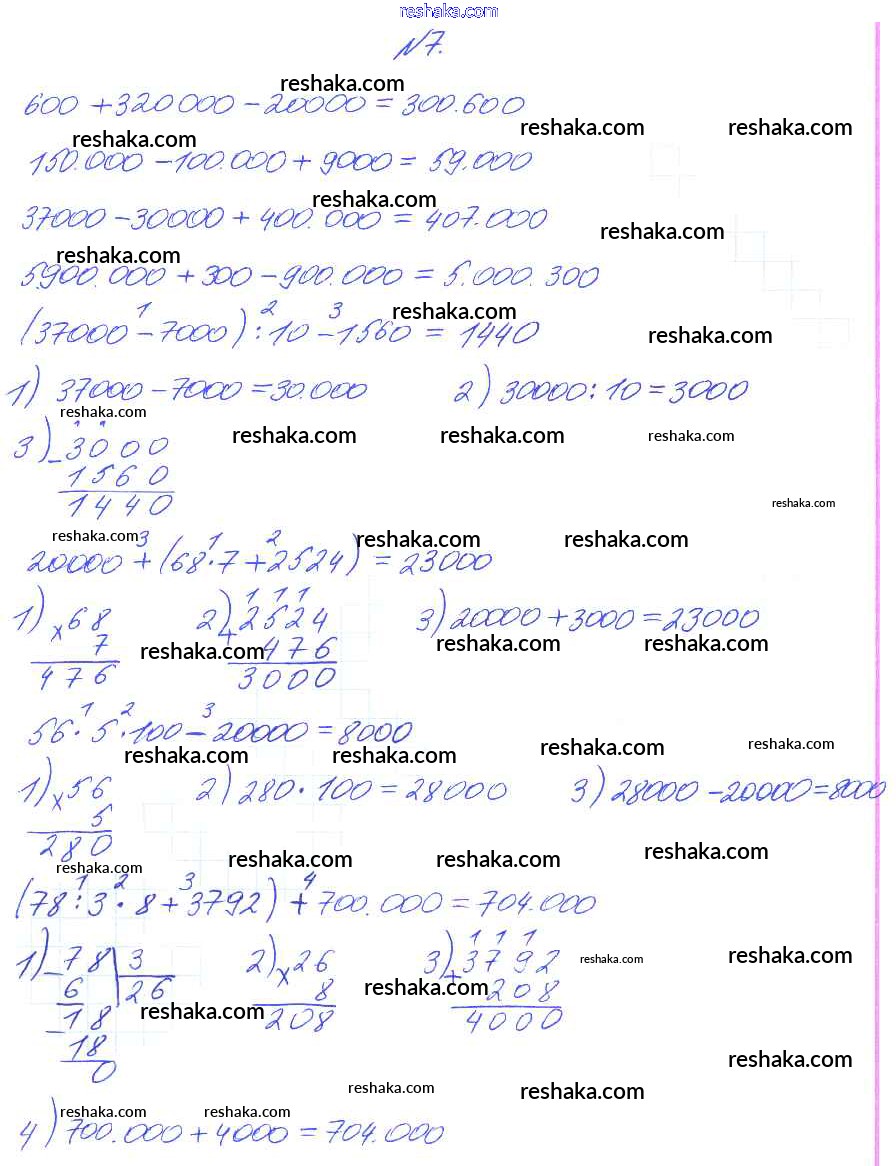 reshaka.com
№7.
reshaka.com
600 + 320000 - 20000 = 300.600
reshaka.com reshaka.com
reshaka.com
150.000 - 100.000 + 9000 = 59.000
reshaka.com
37000 - 30000 + 400.000 = 407.000
reshaka.com
reshaka.com
5900.000 + 300 - 900.000 = 5.000.300
1 2 3 reshaka.com
(37000 - 7000) : 10 - 1560 = 1440
reshaka.com
1) 37000 - 7000 = 30.000 2) 30000 : 10 = 3000
reshaka.com
reshaka.com reshaka.com reshaka.com
3) - 3000
1560
1440
reshaka.com
reshaka.com 3 1 2 reshaka.com reshaka.com
20000 + (68 · 7 + 2524) = 23000
1 1 1
1) × 68 2) + 2524 3) 20000 + 3000 = 23000
7 reshaka.com 476 reshaka.com reshaka.com
476 3000
1 2 3
56 · 5 · 100 - 20000 = 8000
reshaka.com reshaka.com reshaka.com reshaka.com
1) × 56 2) 280 · 100 = 28000 3) 28000 - 20000 = 8000
5
280
reshaka.com reshaka.com reshaka.com reshaka.com
1 2 3 4
(78 : 3 · 8 + 3792) + 700.000 = 704.000
1 1 1
1) - 78 3 2) × 26 3) + 3792 reshaka.com reshaka.com
6 26 8 reshaka.com 208
- 18 reshaka.com 208 4000
18
0
reshaka.com
reshaka.com reshaka.com
reshaka.com reshaka.com
4) 700.000 + 4000 = 704.000